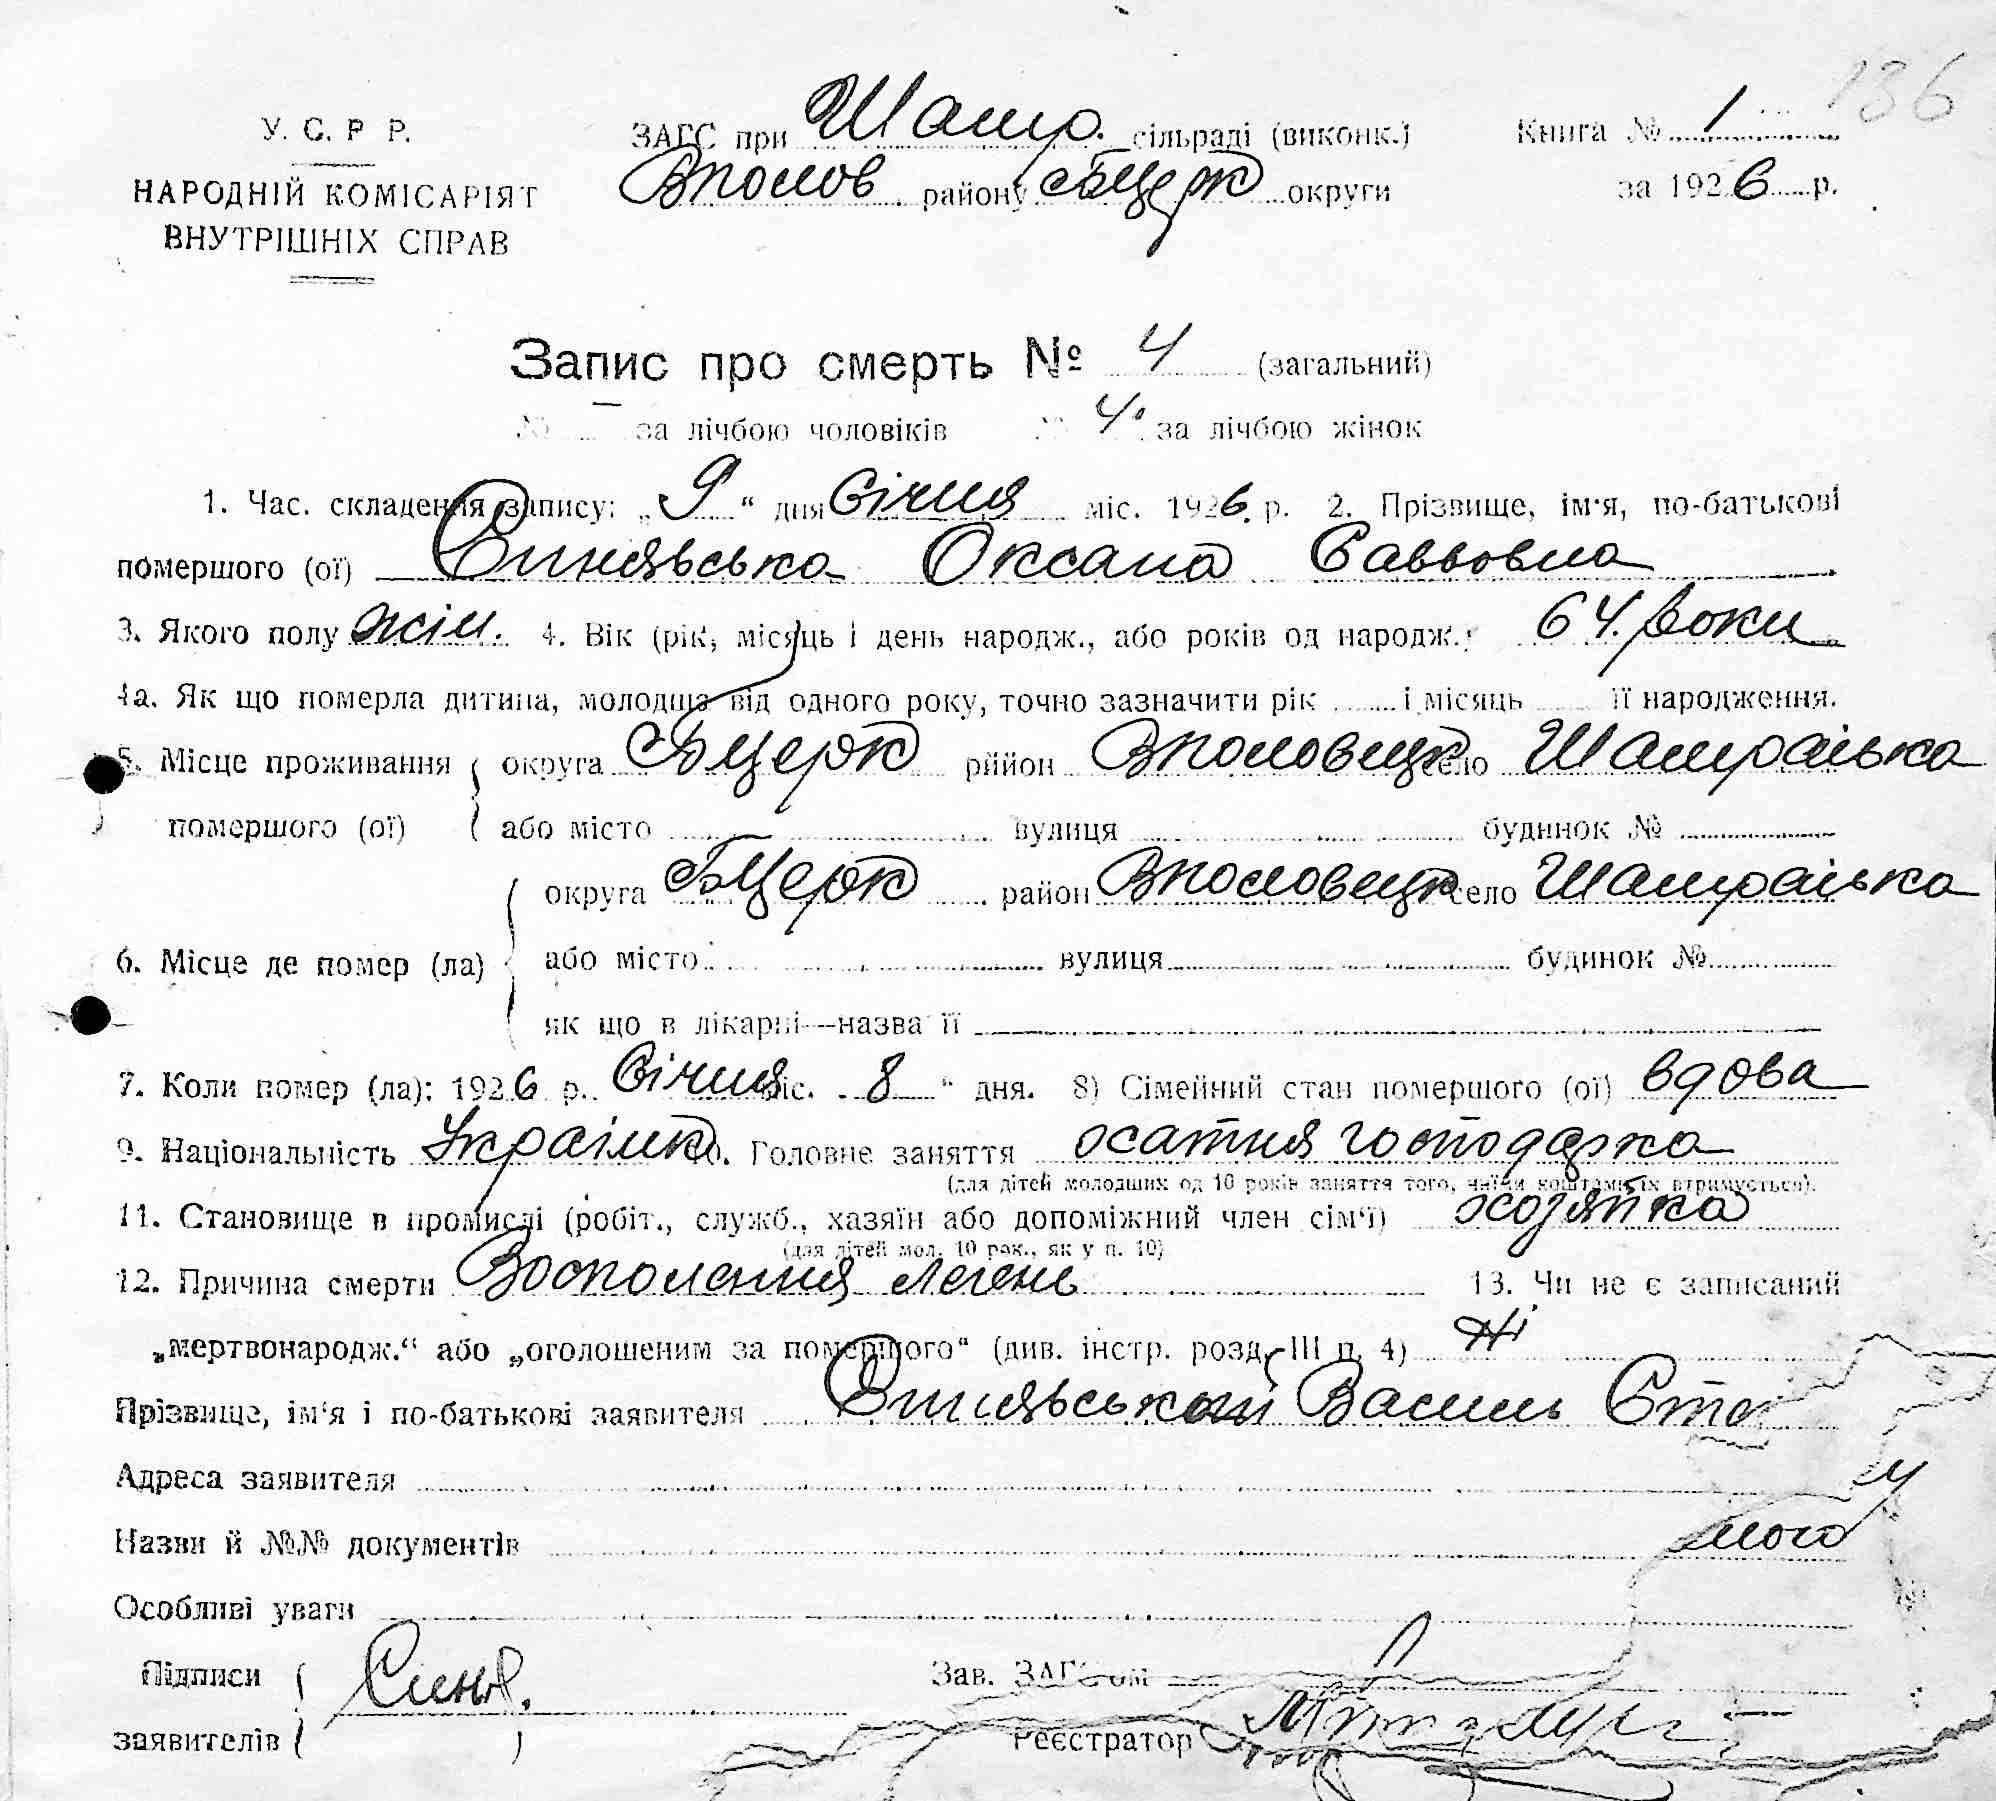 136
У. С. Р Р.
НАРОДНІЙ КОМІСАРІЯТ
ВНУТРІШНІХ СПРАВ
ЗАГС при Шамр. сільраді (виконк.)
Вполов району БЦерк округи
Книга № 1
за 1926 р.
Запис про смерть № 4 (загальний)
№ — за лічбою чоловіків № 4. за лічбою жінок
1. Час. складення запису: „9“ дня Січня міс. 1926. р. 2. Прізвище, ім'я, по-батькові
помершого (ої) Синявська Оксана Саввовна
3. Якого полу жін. 4. Вік (рік, місяць і день народж., або років од народж.) 64. роки
4а. Як що померла дитина, молодша від одного року, точно зазначити рік і місяць її народження.
5. Місце проживання округа БЦерк рййон Вполовецк село Шамраївка
помершого (ої) або місто — вулиця будинок №
округа БЦерк район Вполовецк село Шамраївка
6. Місце де помер (ла) або місто вулиця будинок №
як що в лікарні—назва її
7. Коли помер (ла): 1926 р. Січня міс. 8 “ дня. 8) Сімейний стан помершого (ої) вдова
9. Національність Україмк 10. Головне заняття хатня господарка
(для дітей молодших од 10 років заняття того, чиїми коштами їх втримується).
11. Становище в промислі (робіт., служб., хазяїн або допоміжний член сім'ї) хозяйка
(для дітей мол. 10 рок., як у п. 10)
12. Причина смерти Восполения легень 13. Чи не є записаний
„мертвонародж.“ або „оголошеним за помершого“ (див. інстр. розд. III п. 4) Ні
Прізвище, ім'я і по-батькові заявителя Синявський Василь
Адреса заявителя
Назви й №№ документів
Особливі уваги
Підписи Синяв. Зав. ЗАГС'ом
заявителів Реєстратор